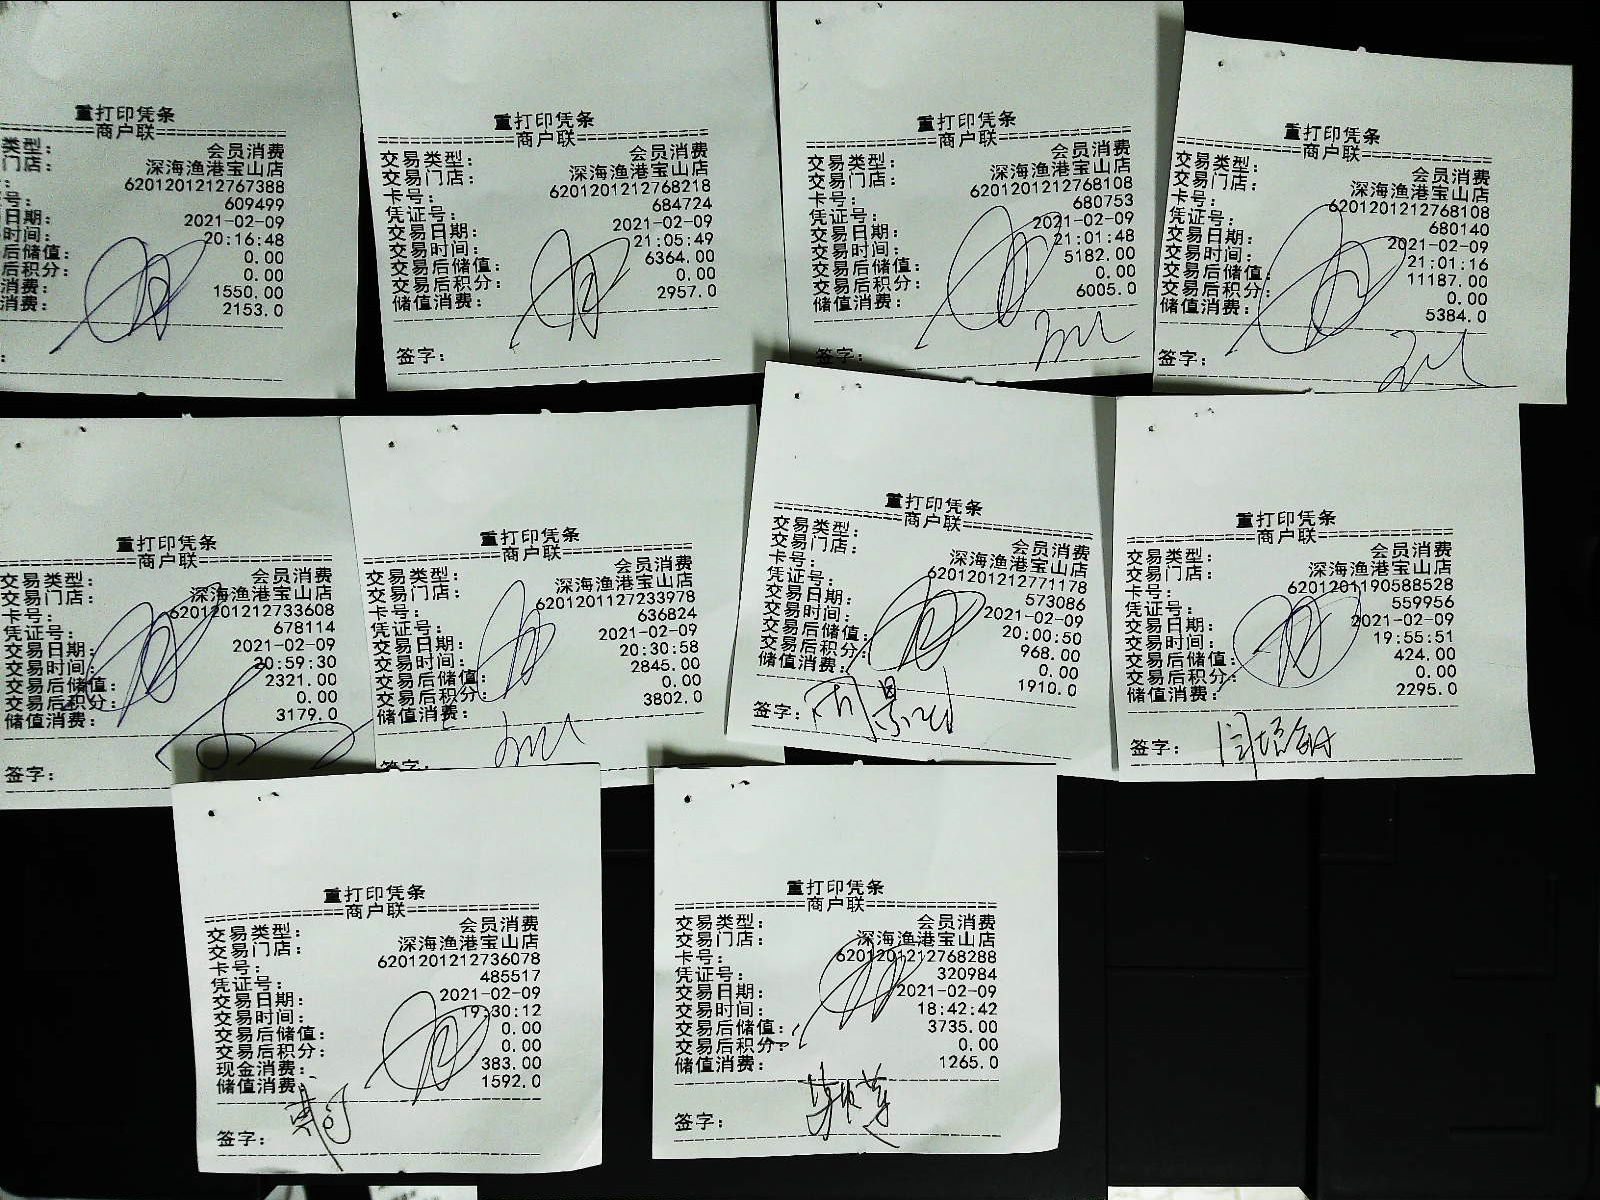 重打印凭条
==========商户联==========
类型： 会员消费
门店： 深海渔港宝山店
： 6201201212767388
号： 609499
日期： 2021-02-09
时间： 20:16:48
后储值： 0.00
后积分： 0.00
消费： 1550.00
消费： 2153.0
：
重打印凭条
==========商户联==========
交易类型： 会员消费
交易门店： 深海渔港宝山店
卡号： 6201201212768218
凭证号： 684724
交易日期： 2021-02-09
交易时间： 21:05:49
交易后储值： 6364.00
交易后积分： 0.00
储值消费： 2957.0
签字：
重打印凭条
==========商户联==========
交易类型： 会员消费
交易门店： 深海渔港宝山店
卡号： 6201201212768108
凭证号： 680753
交易日期： 2021-02-09
交易时间： 21:01:48
交易后储值： 5182.00
交易后积分： 0.00
储值消费： 6005.0
签字：
重打印凭条
==========商户联==========
交易类型： 会员消费
交易门店： 深海渔港宝山店
卡号： 6201201212768108
凭证号： 680140
交易日期： 2021-02-09
交易时间： 21:01:16
交易后储值： 11187.00
交易后积分： 0.00
储值消费： 5384.0
签字：
重打印凭条
==========商户联==========
交易类型： 会员消费
交易门店： 深海渔港宝山店
卡号： 6201201212733608
凭证号： 678114
交易日期： 2021-02-09
交易时间： 20:59:30
交易后储值： 2321.00
交易后积分： 0.00
储值消费： 3179.0
签字：
重打印凭条
==========商户联==========
交易类型： 会员消费
交易门店： 深海渔港宝山店
卡号： 6201201127233978
凭证号： 636824
交易日期： 2021-02-09
交易时间： 20:30:58
交易后储值： 2845.00
交易后积分： 0.00
储值消费： 3802.0
签字：
重打印凭条
==========商户联==========
交易类型： 会员消费
交易门店： 深海渔港宝山店
卡号： 6201201212771178
凭证号： 573086
交易日期： 2021-02-09
交易时间： 20:00:50
交易后储值： 968.00
交易后积分： 0.00
储值消费： 1910.0
签字：
重打印凭条
==========商户联==========
交易类型： 会员消费
交易门店： 深海渔港宝山店
卡号： 6201201190588528
凭证号： 559956
交易日期： 2021-02-09
交易时间： 19:55:51
交易后储值： 424.00
交易后积分： 0.00
储值消费： 2295.0
签字：
重打印凭条
==========商户联==========
交易类型： 会员消费
交易门店： 深海渔港宝山店
卡号： 6201201212736078
凭证号： 485517
交易日期： 2021-02-09
交易时间： 19:30:12
交易后储值： 0.00
交易后积分： 0.00
现金消费： 383.00
储值消费： 1592.0
签字：
重打印凭条
==========商户联==========
交易类型： 会员消费
交易门店： 深海渔港宝山店
卡号： 6201201212768288
凭证号： 320984
交易日期： 2021-02-09
交易时间： 18:42:42
交易后储值： 3735.00
交易后积分： 0.00
储值消费： 1265.0
签字：